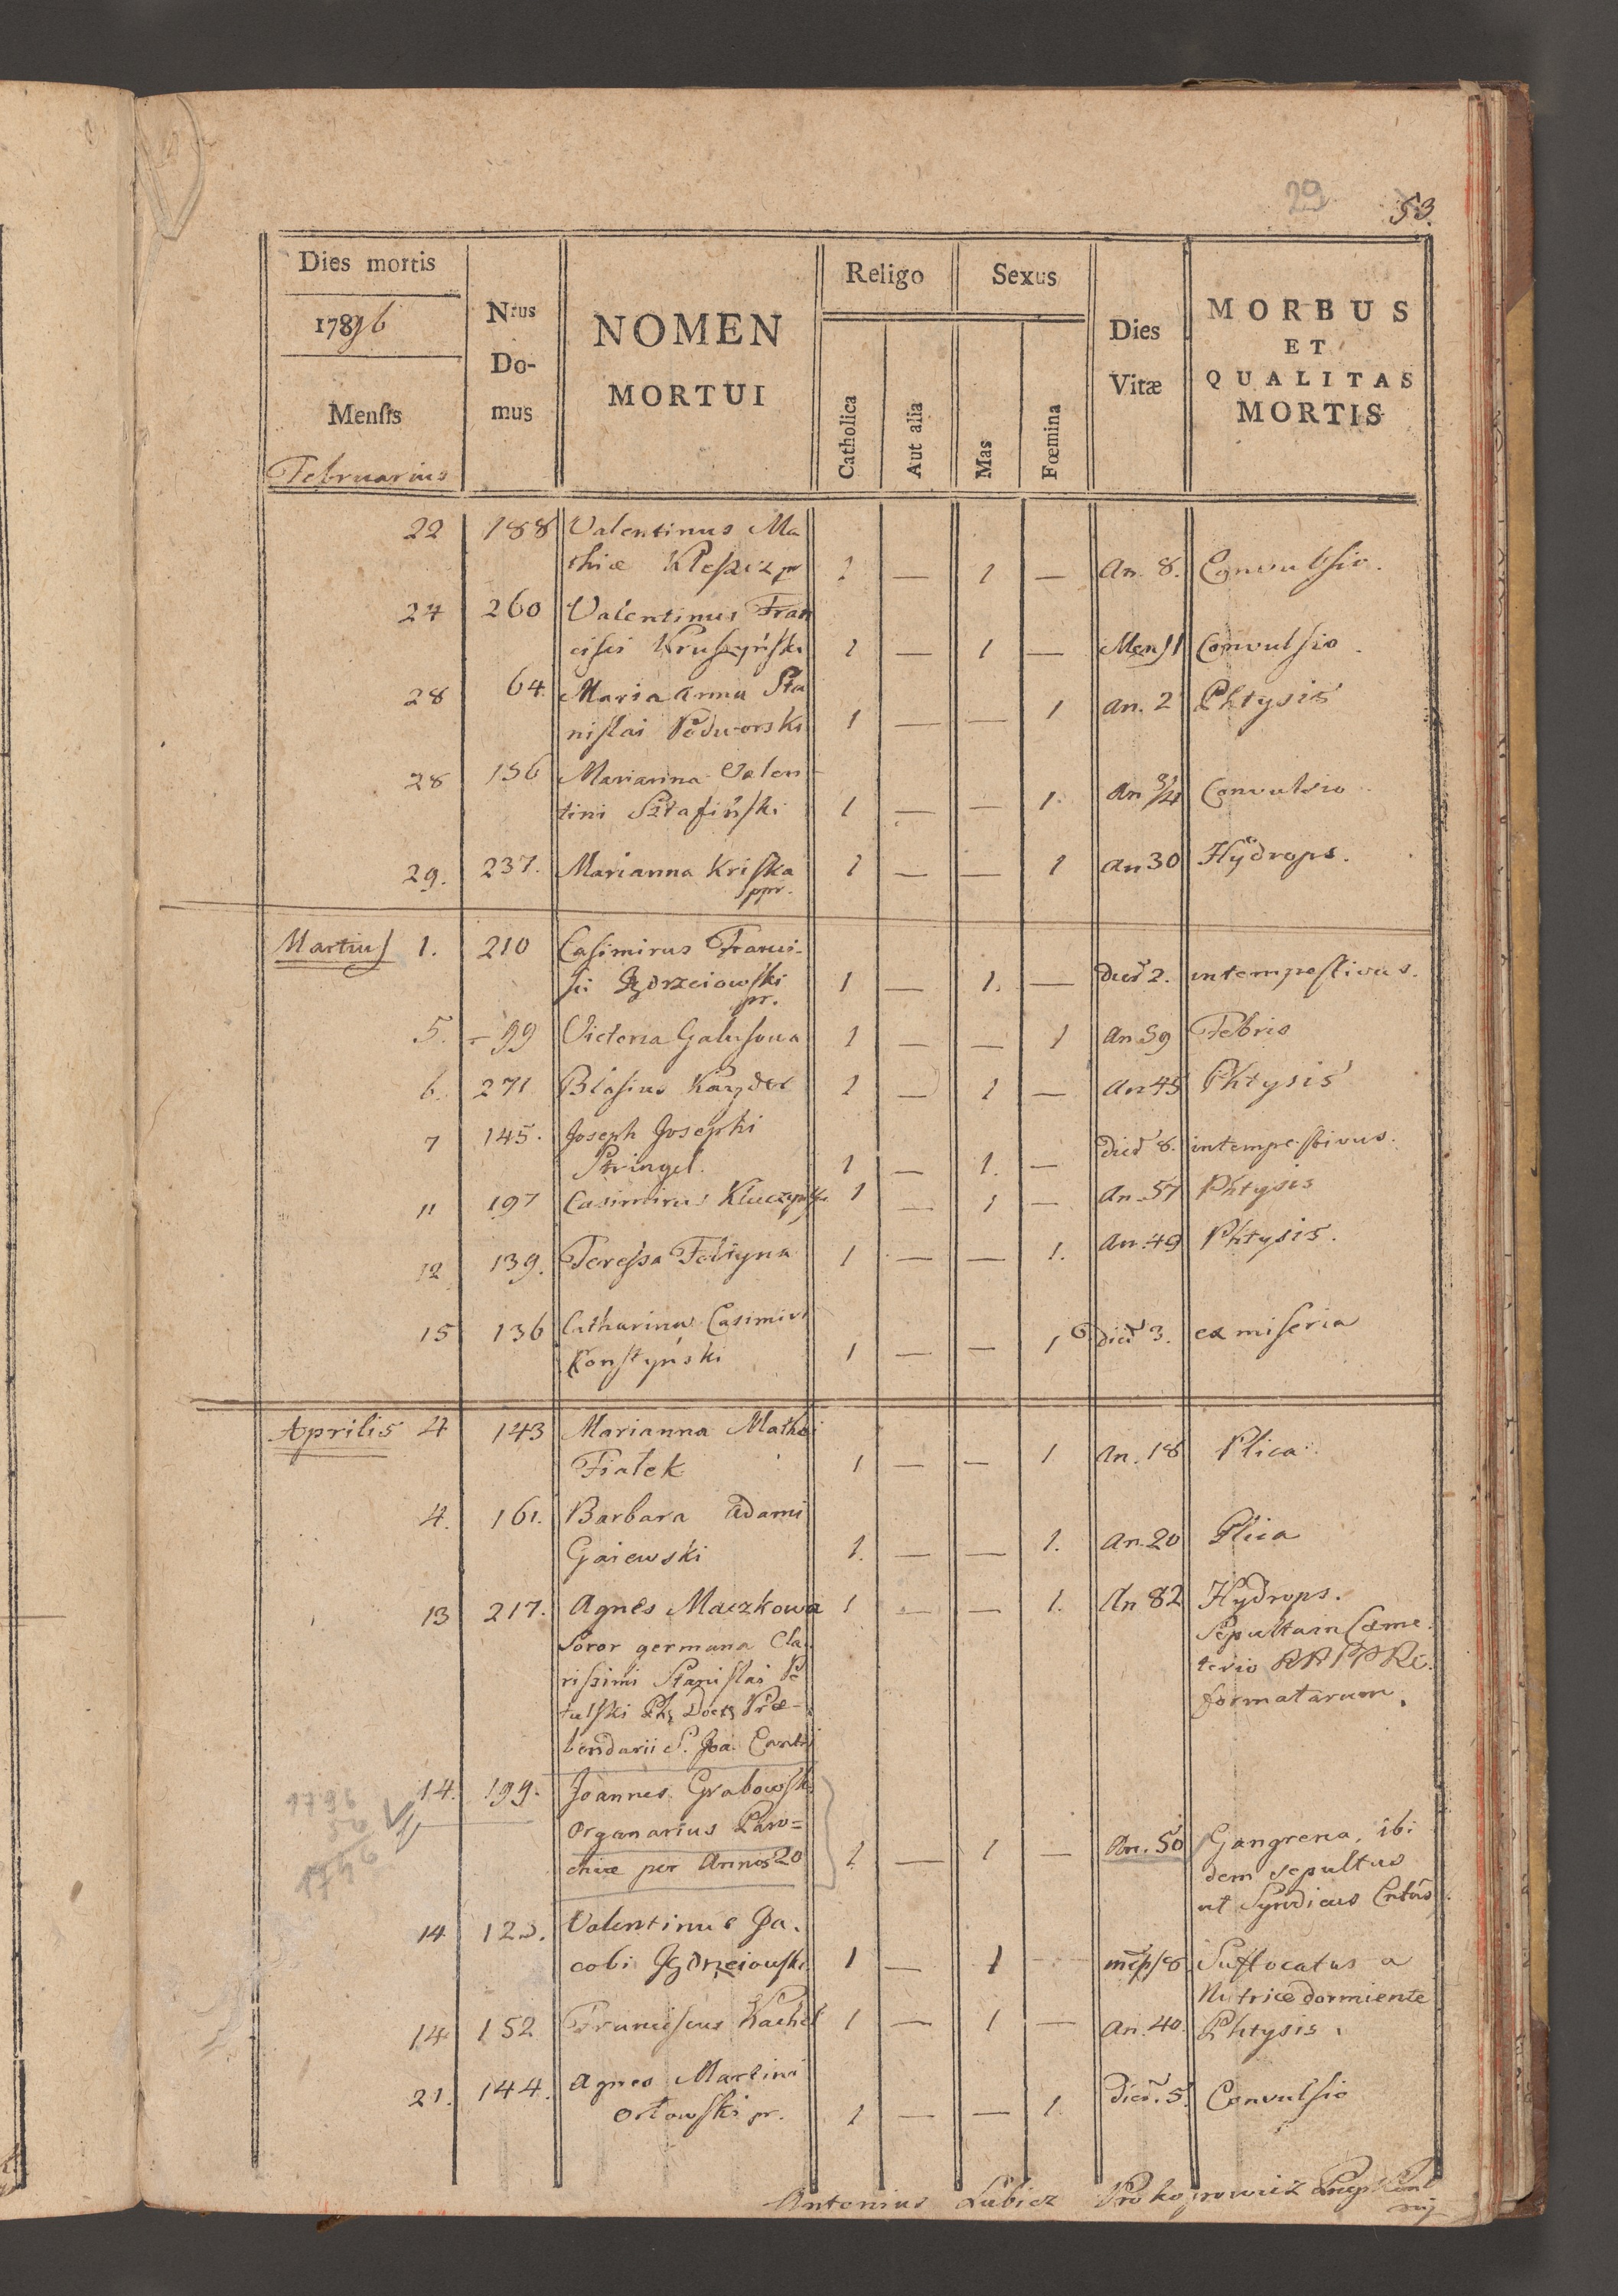 29
53.
Dies mortis
1796
Mensis
Februarius
Nrus
Do-
mus
NOMEN
MORTUI
Religo
Catholica
Aut alia
Sexus
Mas
Fœmina
Dies
Vitæ
MORBUS
ET
QUALITAS
MORTIS
22 188 Valentinus Ma
thiæ Kleszcz pr 1 — 1 — An. 8. Convulsio.
24 260 Valentinus Fran
cisci Kruszyński 1 — 1 — Mens 1 Convulsio.
28 64 Maria Anna Sta
nislai Podworski 1 — — 1 An. 2 Phtysis
28 156 Marianna Valen-
tini Sztafiński 1 — — 1. An 3/4 Convulsio
29. 237. Marianna Kriska 1 — — 1 An 30 Hydrops.
ppr.
Martius 1. 210 Casimirus Franci-
sci Jędrzeiowski 1 — 1. — Dieb 2. intempestivus.
pr.
5. 99 Victoria Galusowa 1 — — 1 An 59 Febris
6. 271 Blasius 1 — 1 — An 45 Phtysis
7 145. Joseph Josephi
Stringel. 1 — 1. — Dieb 8. intempestivus.
11 197 Casimirus 1 — 1 — An. 57 Phtysis
12 139. Teressa 1 — — 1. An. 49 Phtysis.
15 136 Catharina Casimiri
Konstyński 1 — — 1 Dieb 3. ex miseria
Aprilis 4 143 Marianna Mathei
Fiałek 1 — — 1 An. 18 Plica
4. 161. Barbara Adami
Gaiewski 1. — — 1. An. 20 Plica
13 217. Agnes Maczkowa 1 — — 1. An 82 Hydrops.
Soror germana Cla-
rissimi Stanislai Pe
tulski Ph Doct Præ-
bendarii S. Joa. Cantii
Sepulta in Cæme
terio RR PP Re
formatorum.
14. 199. Joannes Grabowski
Organarius Paro=
chiæ per Annos 20 1 — 1 — An. 50 Gangrena, ibi
dem sepultus
ut Syndicus
1796
50
1746
14 123. Valentinus Ja.
cobi Jędrzeiowski 1 — 1 8 Suffocatus a
Nutrice dormiente
14 152 Franciscus Kachel 1 — 1 — An. 40. Phtysis.
21. 144. Agnes Martini
Orłowski pr. 1 — — 1. Dieb. 5. Convulsio
Antonius Lubicz Prokopowicz